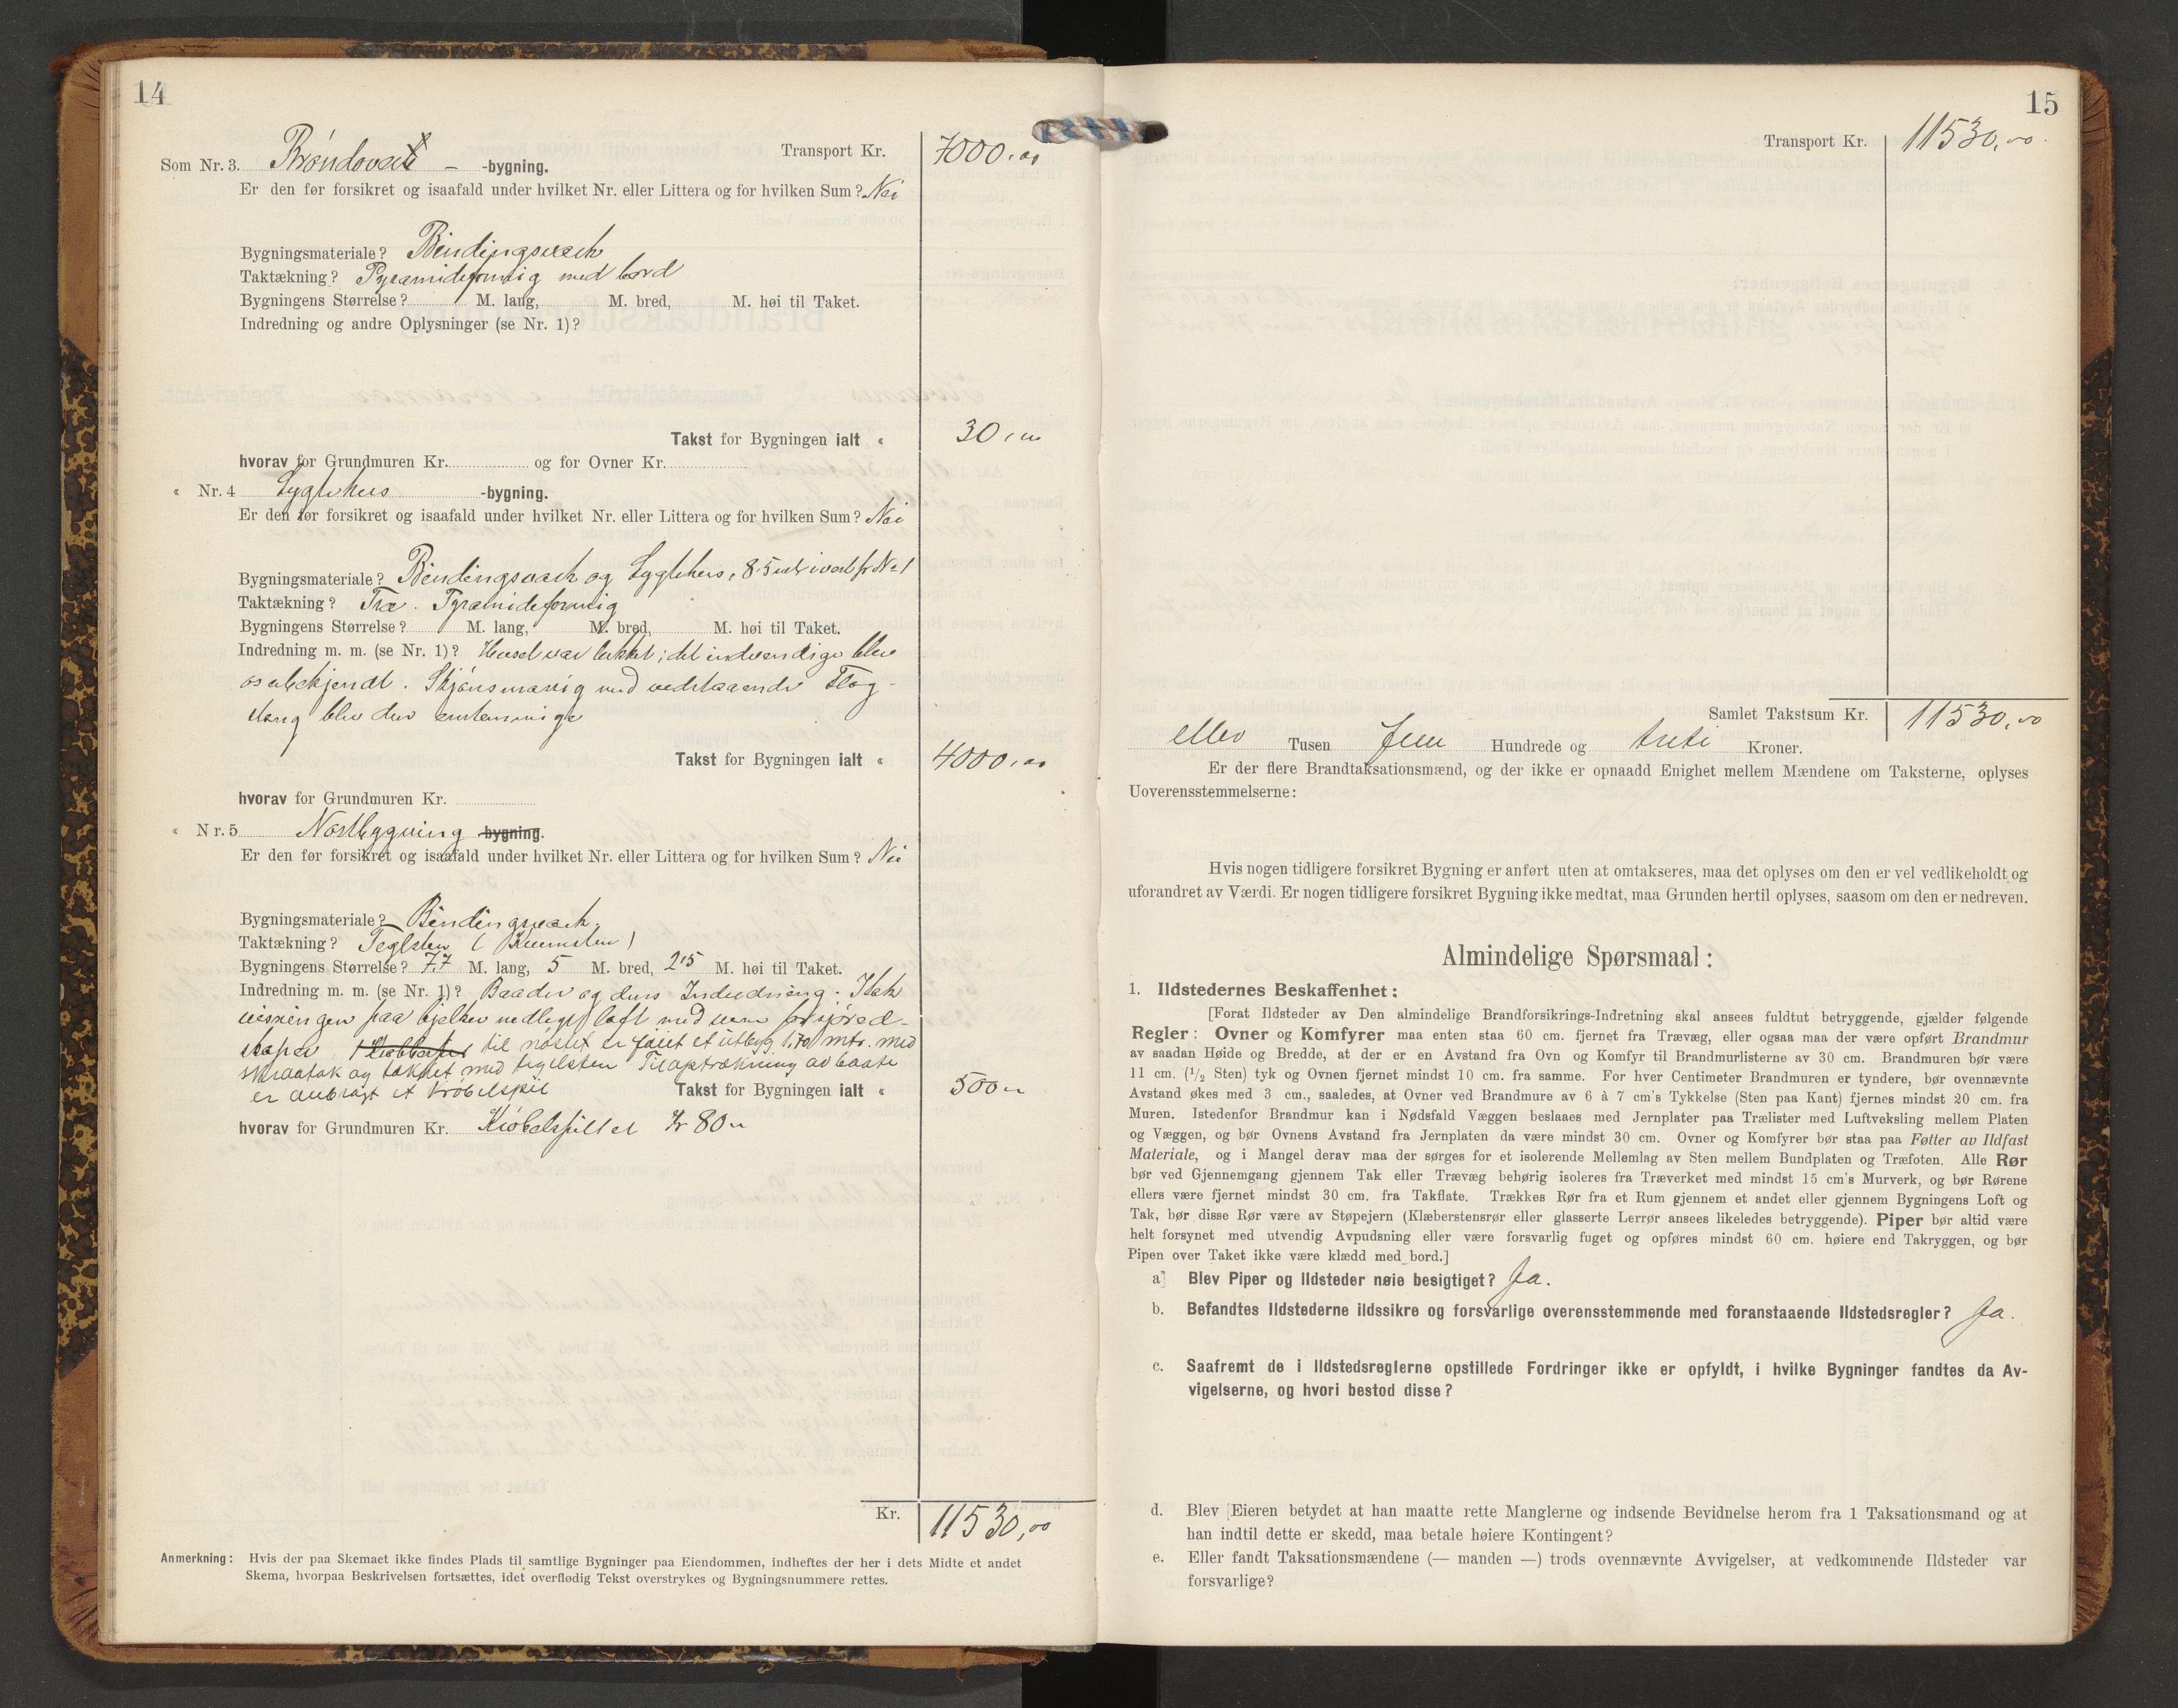 14
Transport Kr. 7000,00
Som Nr. 3. Brøndover - -bygning.
Er den før forsikret og isaafald under hvilket Nr. eller Littera og for hvilken Sum? Nei
Bygningsmateriale? Bindingsverk
Taktækning? Pyramideformig med bord
Bygningens Størrelse? M. lang, M. bred, M. høi til Taket.
Indredning og andre Oplysninger (se Nr. 1)?
Takst for Bygningen ialt « 30,00
hvorav for Grundmuren Kr. og for Ovner Kr.
« Nr. 4 Lygtehus -bygning.
Er den før forsikret og isaafald under hvilket Nr. eller Littera og for hvilken Sum? Nei
Bygningsmateriale? Bindingsverk og Lygtehus, 85 mtr i vest fr No 1
Taktækning? Træ. Pyramideformig
Bygningens Størrelse? M. lang, M. bred, M. høi til Taket.
Indredning m. m. (se Nr. 1)? Huset var lukket; det indvendige blev
os ubekjendt. Skjønsmæssig med vedstaaende Flag-
stang blev den enstemmige
Takst for Bygningen ialt « 4000,00
hvorav for Grundmuren Kr.
« Nr. 5 Nøstbygning -bygning.
Er den før forsikret og isaafald under hvilket Nr. eller Littera og for hvilken Sum? Nei
Bygningsmateriale? Bindingverk.
Taktækning? Teglsten ( )
Bygningens Størrelse? 7,7 M. lang, 5 M. bred, 2,5 M. høi til Taket.
Indredning m. m. (se Nr. 1)? Baader og dens Indredning.
paa bjelker nedlagt loft med rum for sjøred-
skaper. til nøstet er føiet et utbyg, 1,70 mtr. med
skraatak og tækket med teglsten Til optrækning av baate
er anbragt et Krøbelspil
Takst for Bygningen ialt « 500
hvorav for Grundmuren Kr. Krøbelspillet Kr 80
Kr. 11530,00
Anmerkning: Hvis der paa Skemaet ikke findes Plads til samtlige Bygninger paa Eiendommen, indheftes der her i dets Midte et andet
Skema, hvorpaa Beskrivelsen fortsættes, idet overflødig Tekst overstrykes og Bygningsnummere rettes.
15
Transport Kr. 11530,00
Samlet Takstsum Kr. 11530,00
ellev Tusen fem Hundrede og treti Kroner.
Er der flere Brandtaksationsmænd, og der ikke er opnaadd Enighet mellem Mændene om Taksterne, oplyses
Uoverensstemmelserne:
Hvis nogen tidligere forsikret Bygning er anført uten at omtakseres, maa det oplyses om den er vel vedlikeholdt og
uforandret av Værdi. Er nogen tidligere forsikret Bygning ikke medtat, maa Grunden hertil oplyses, saasom om den er nedreven.
Almindelige Spørsmaal:
1. Ildstedernes Beskaffenhet:
[Forat Ildsteder av Den almindelige Brandforsikrings-Indretning skal ansees fuldtut betryggende, gjælder følgende
Regler: Ovner og Komfyrer maa enten staa 60 cm. fjernet fra Trævæg, eller ogsaa maa der være opført Brandmur
av saadan Høide og Bredde, at der er en Avstand fra Ovn og Komfyr til Brandmurlisterne av 30 cm. Brandmuren bør være
11 cm. (1/2 Sten) tyk og Ovnen fjernet mindst 10 cm. fra samme. For hver Centimeter Brandmuren er tyndere, bør ovennævnte
Avstand økes med 3 cm., saaledes, at Ovner ved Brandmure av 6 à 7 cm's Tykkelse (Sten paa Kant) fjernes mindst 20 cm. fra
Muren. Istedenfor Brandmur kan i Nødsfald Væggen beslaaes med Jernplater paa Trælister med Luftveksling mellem Platen
og Væggen, og bør Ovnens Avstand fra Jernplaten da være mindst 30 cm. Ovner og Komfyrer bør staa paa Føtter av Ildfast
Materiale, og i Mangel derav maa der sørges for et isolerende Mellemlag av Sten mellem Bundplaten og Træfoten. Alle Rør
bør ved Gjennemgang gjennem Tak eller Trævæg behørig isoleres fra Træverket med mindst 15 cm's Murverk, og bør Rørene
ellers være fjernet mindst 30 cm. fra Takflate. Trækkes Rør fra et Rum gjennem et andet eller gjennem Bygningens Loft og
Tak, bør disse Rør være av Støpejern (Klæberstensrør eller glasserte Lerrør ansees likeledes betryggende). Piper bør altid være
helt forsynet med utvendig Avpudsning eller være forsvarlig fuget og opføres mindst 60 cm. høiere end Takryggen, og bør
Pipen over Taket ikke være klædd med bord.]
a] Blev Piper og Ildsteder nøie besigtiget? Ja.
b. Befandtes Ildstederne ildssikre og forsvarlige overensstemmende med foranstaaende Ildstedsregler? Ja.
c. Saafremt de i Ildstedsreglerne opstillede Fordringer ikke er opfyldt, i hvilke Bygninger fandtes da Av-
vigelserne, og hvori bestod disse?
d. Blev [Eieren betydet at han maatte rette Manglerne og indsende Bevidnelse herom fra 1 Taksationsmand og at
han indtil dette er skedd, maa betale høiere Kontingent?
e. Eller fandt Taksationsmændene (— manden —) trods ovennævnte Avvigelser, at vedkommende Ildsteder var
forsvarlige?